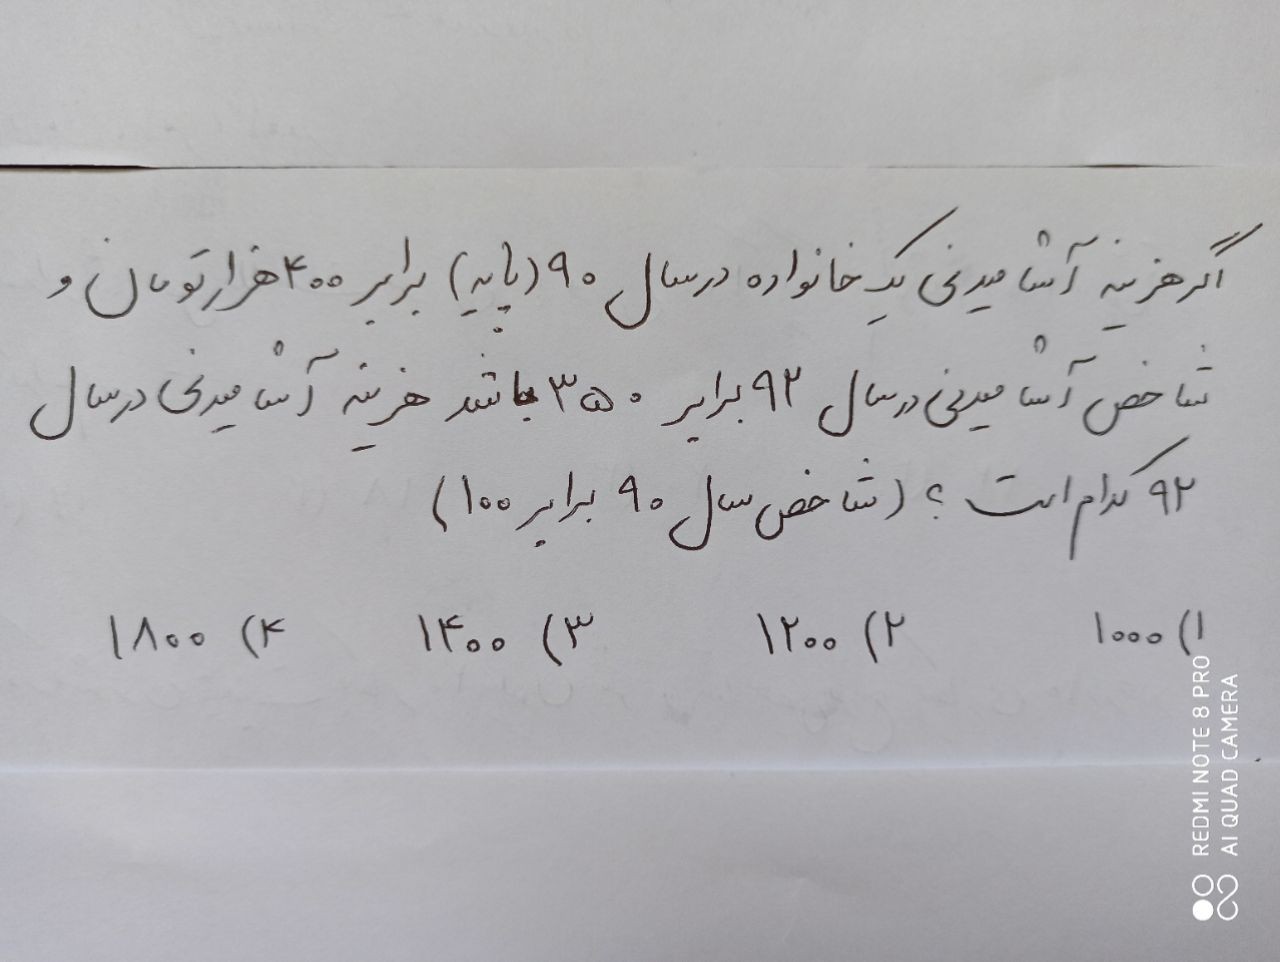 اگر هزینه آشامیدنی یک خانواده در سال ۹۰ (پایه) برابر ۴۰۰ هزار تومان و
شاخص آشامیدنی در سال ۹۲ برابر ۳۵۰ باشد هزینه آشامیدنی در سال
۹۲ کدام است ؟ (شاخص سال ۹۰ برابر ۱۰۰)
۱) ۱۰۰۰ ۲) ۱۲۰۰ ۳) ۱۴۰۰ ۴) ۱۸۰۰
REDMI NOTE 8 PRO
AI QUAD CAMERA